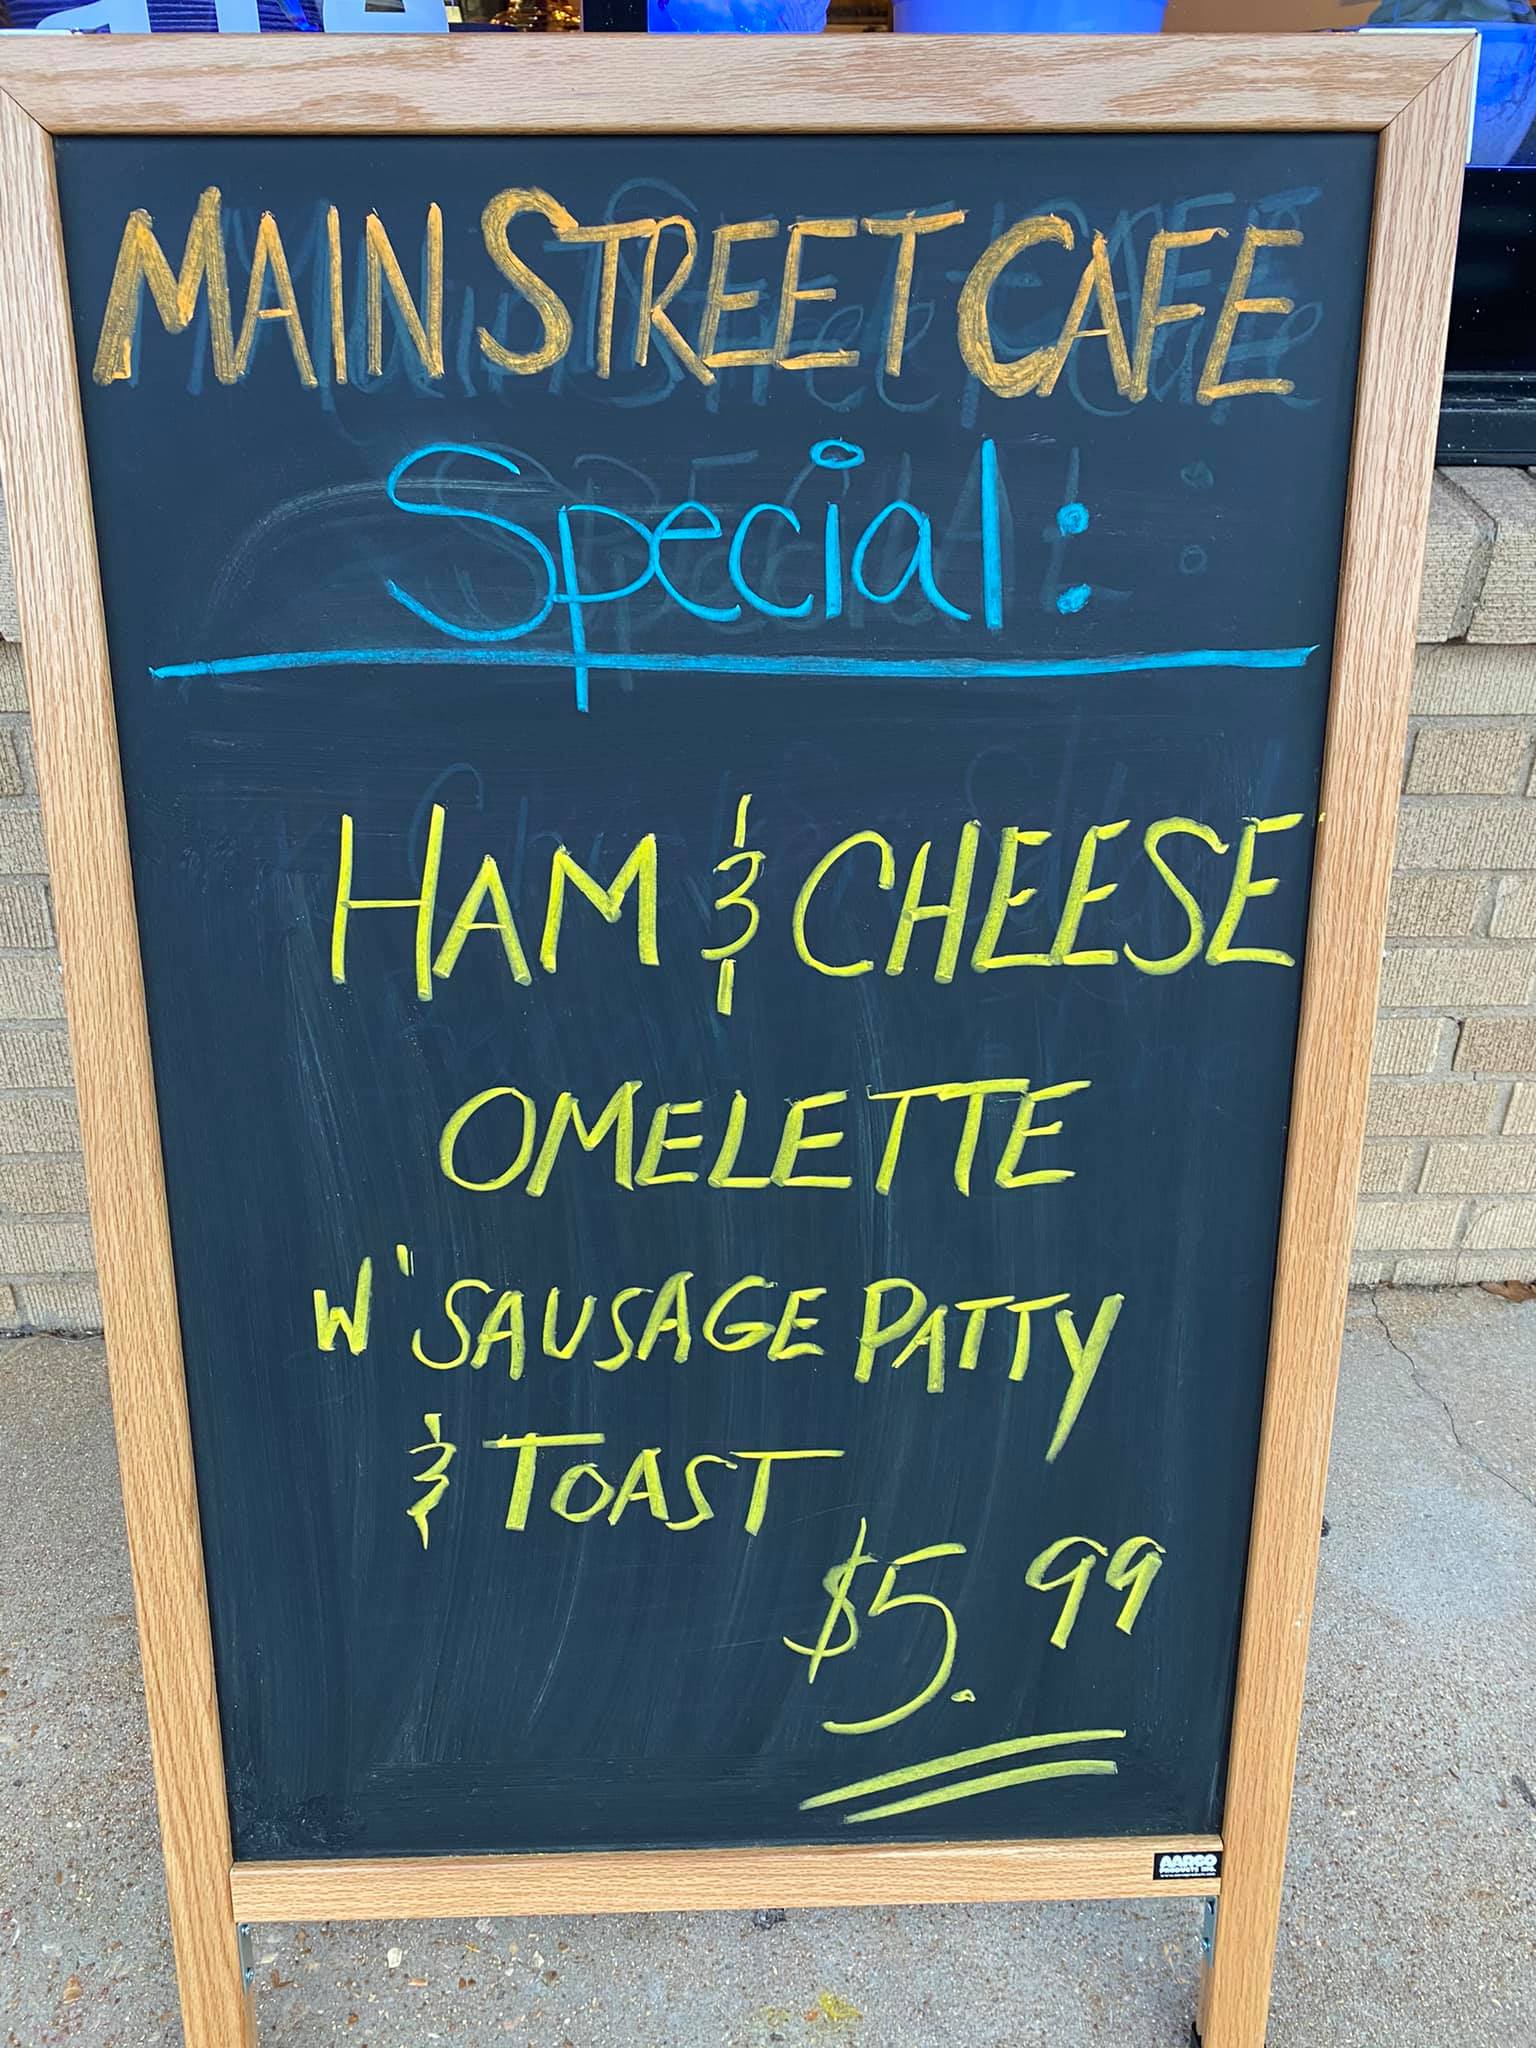 MAIN STREET CAFE
Special:
HAM & CHEESE
OMELETTE
W' SAUSAGE PATTY
& TOAST
$5.99
AARCO